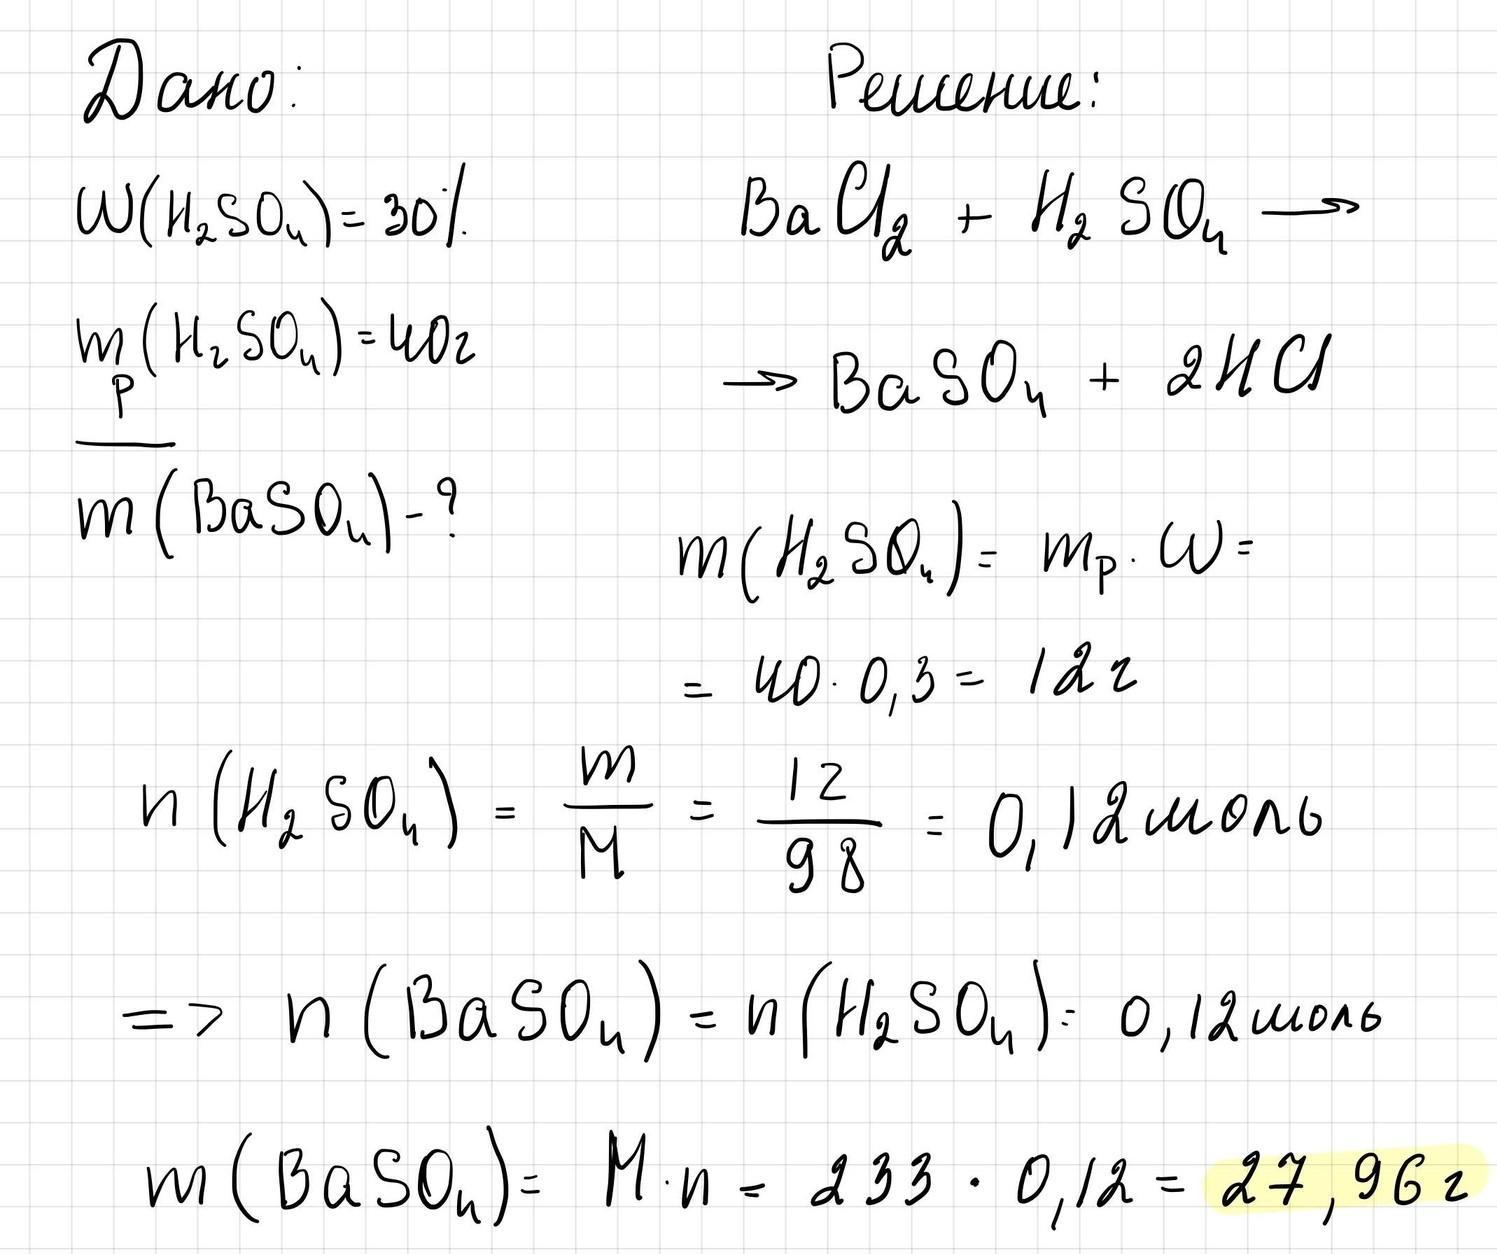 Дано:
W(H₂SO₄) = 30%
mₚ(H₂SO₄) = 40г
m(BaSO₄) - ?
Решение:
BaCl₂ + H₂SO₄ →
→ BaSO₄ + 2HCl
m(H₂SO₄) = mₚ · W =
= 40 · 0,3 = 12г
n(H₂SO₄) = m/M = 12/98 = 0,12моль
=> n(BaSO₄) = n(H₂SO₄) = 0,12моль
m(BaSO₄) = M · n = 233 · 0,12 = 27,96г